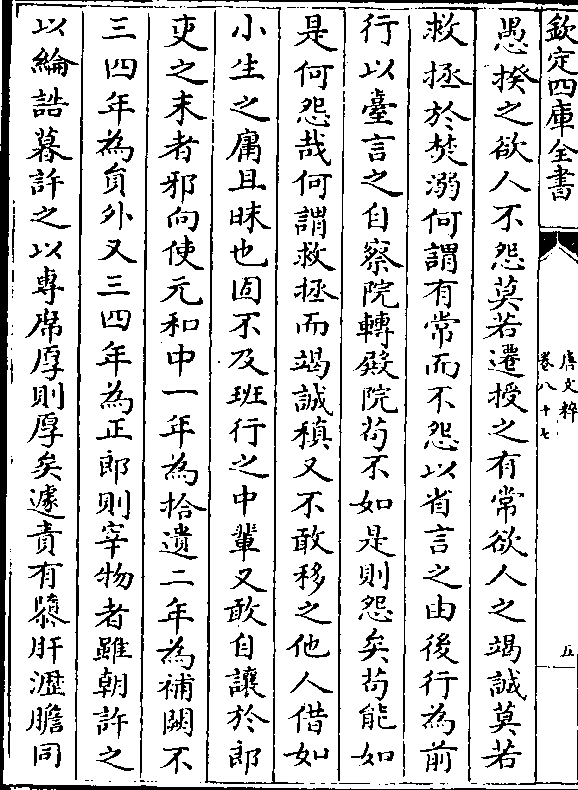 欽定四庫全書
唐文粹
卷八十七
五
愚揆之欲人不怨莫若遷授之有常欲人之竭誠莫若
救拯於焚溺何謂有常而不怨以省言之由後行為前
行以臺言之自察院轉殿院苟不如是則怨矣苟能如
是何怨哉何謂救拯而竭誠稹又不敢移之他人借如
小生之庸且昧也固不及班行之中輩又敢自讓於郎
吏之末者邪向使元和中一年為拾遺二年為補闕不
三四年為員外又三四年為正郎則宰物者雖朝許之
以綸誥暮許之以專席厚則厚矣遽責有隳肝瀝膽同